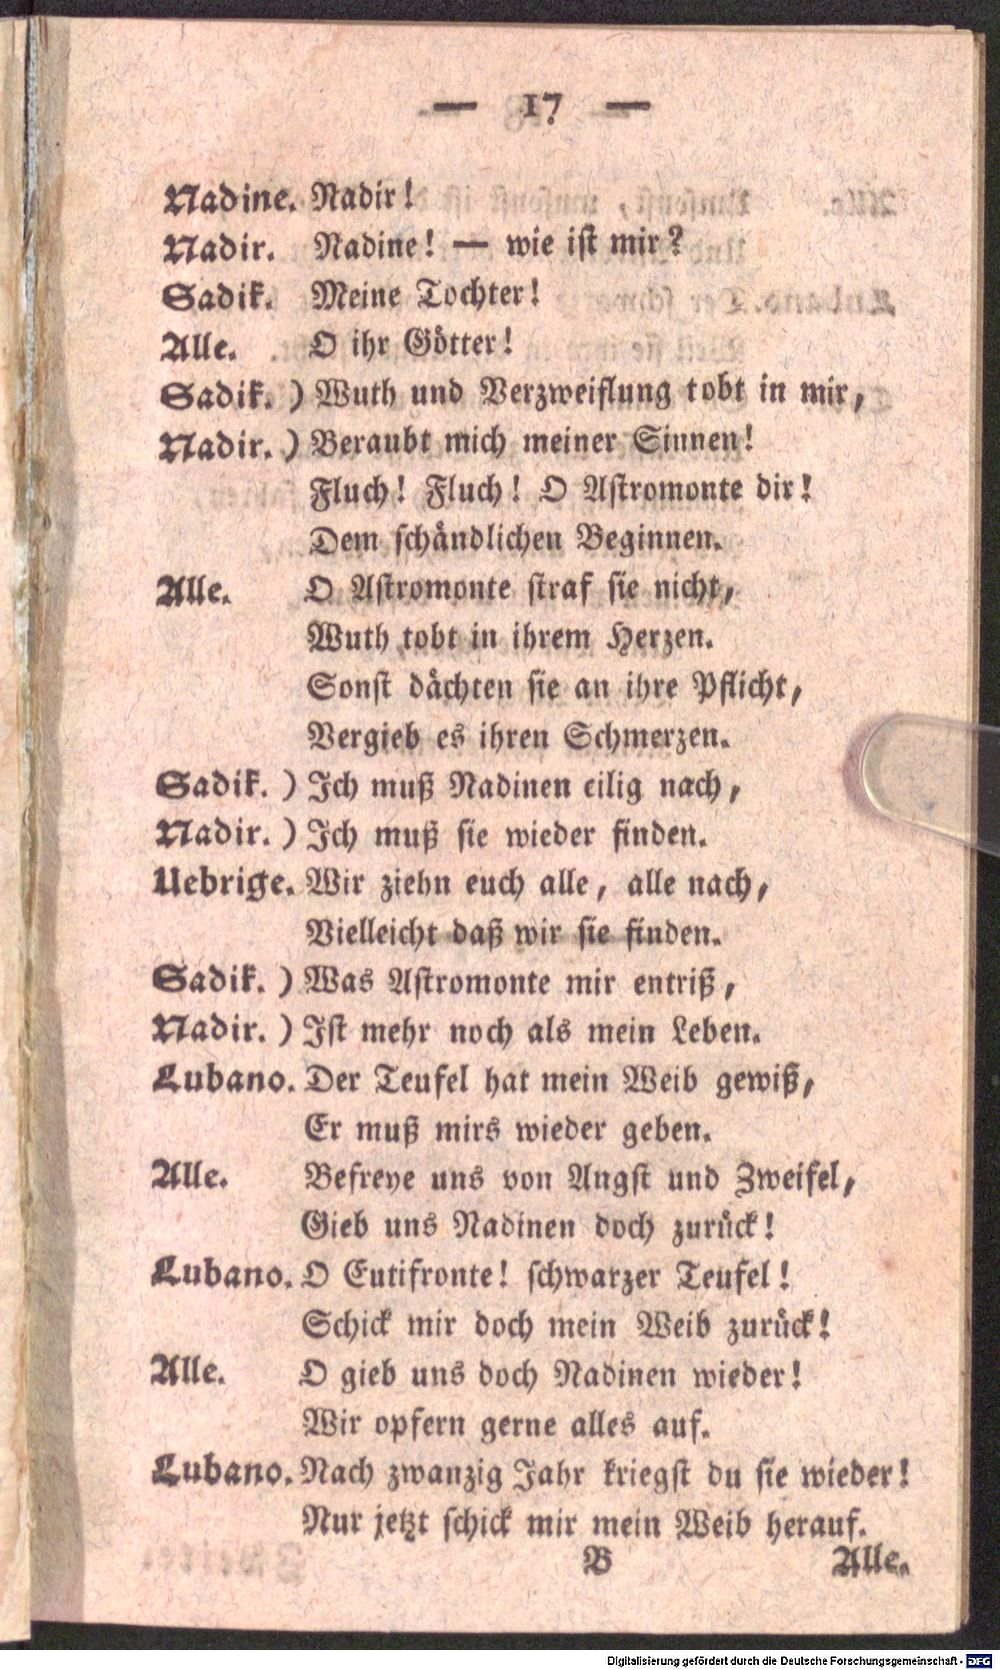 — 17 —
Nadine. Nadir!
Nadir. Nadine! — wie ist mir?
Sadik. Meine Tochter!
Alle. O ihr Götter!
Sadik. ) Wuth und Verzweiflung tobt in mir,
Nadir. ) Beraubt mich meiner Sinnen!
Fluch! Fluch! O Astromonte dir!
Dem schändlichen Beginnen.
Alle. O Astromonte straf sie nicht,
Wuth tobt in ihrem Herzen.
Sonst dächten sie an ihre Pflicht,
Vergieb es ihren Schmerzen.
Sadik. ) Ich muß Nadinen eilig nach,
Nadir. ) Ich muß sie wieder finden.
Uebrige. Wir ziehn euch alle, alle nach,
Vielleicht daß wir sie finden.
Sadik. ) Was Astromonte mir entriß,
Nadir. ) Ist mehr noch als mein Leben.
Lubano. Der Teufel hat mein Weib gewiß,
Er muß mirs wieder geben.
Alle. Befreye uns von Angst und Zweifel,
Gieb uns Nadinen doch zurück!
Lubano. O Eutifronte! schwarzer Teufel!
Schick mir doch mein Weib zurück!
Alle. O gieb uns doch Nadinen wieder!
Wir opfern gerne alles auf.
Lubano. Nach zwanzig Jahr kriegst du sie wieder!
Nur jetzt schick mir mein Weib herauf.
B Alle.
Digitalisierung gefördert durch die Deutsche Forschungsgemeinschaft - DFG